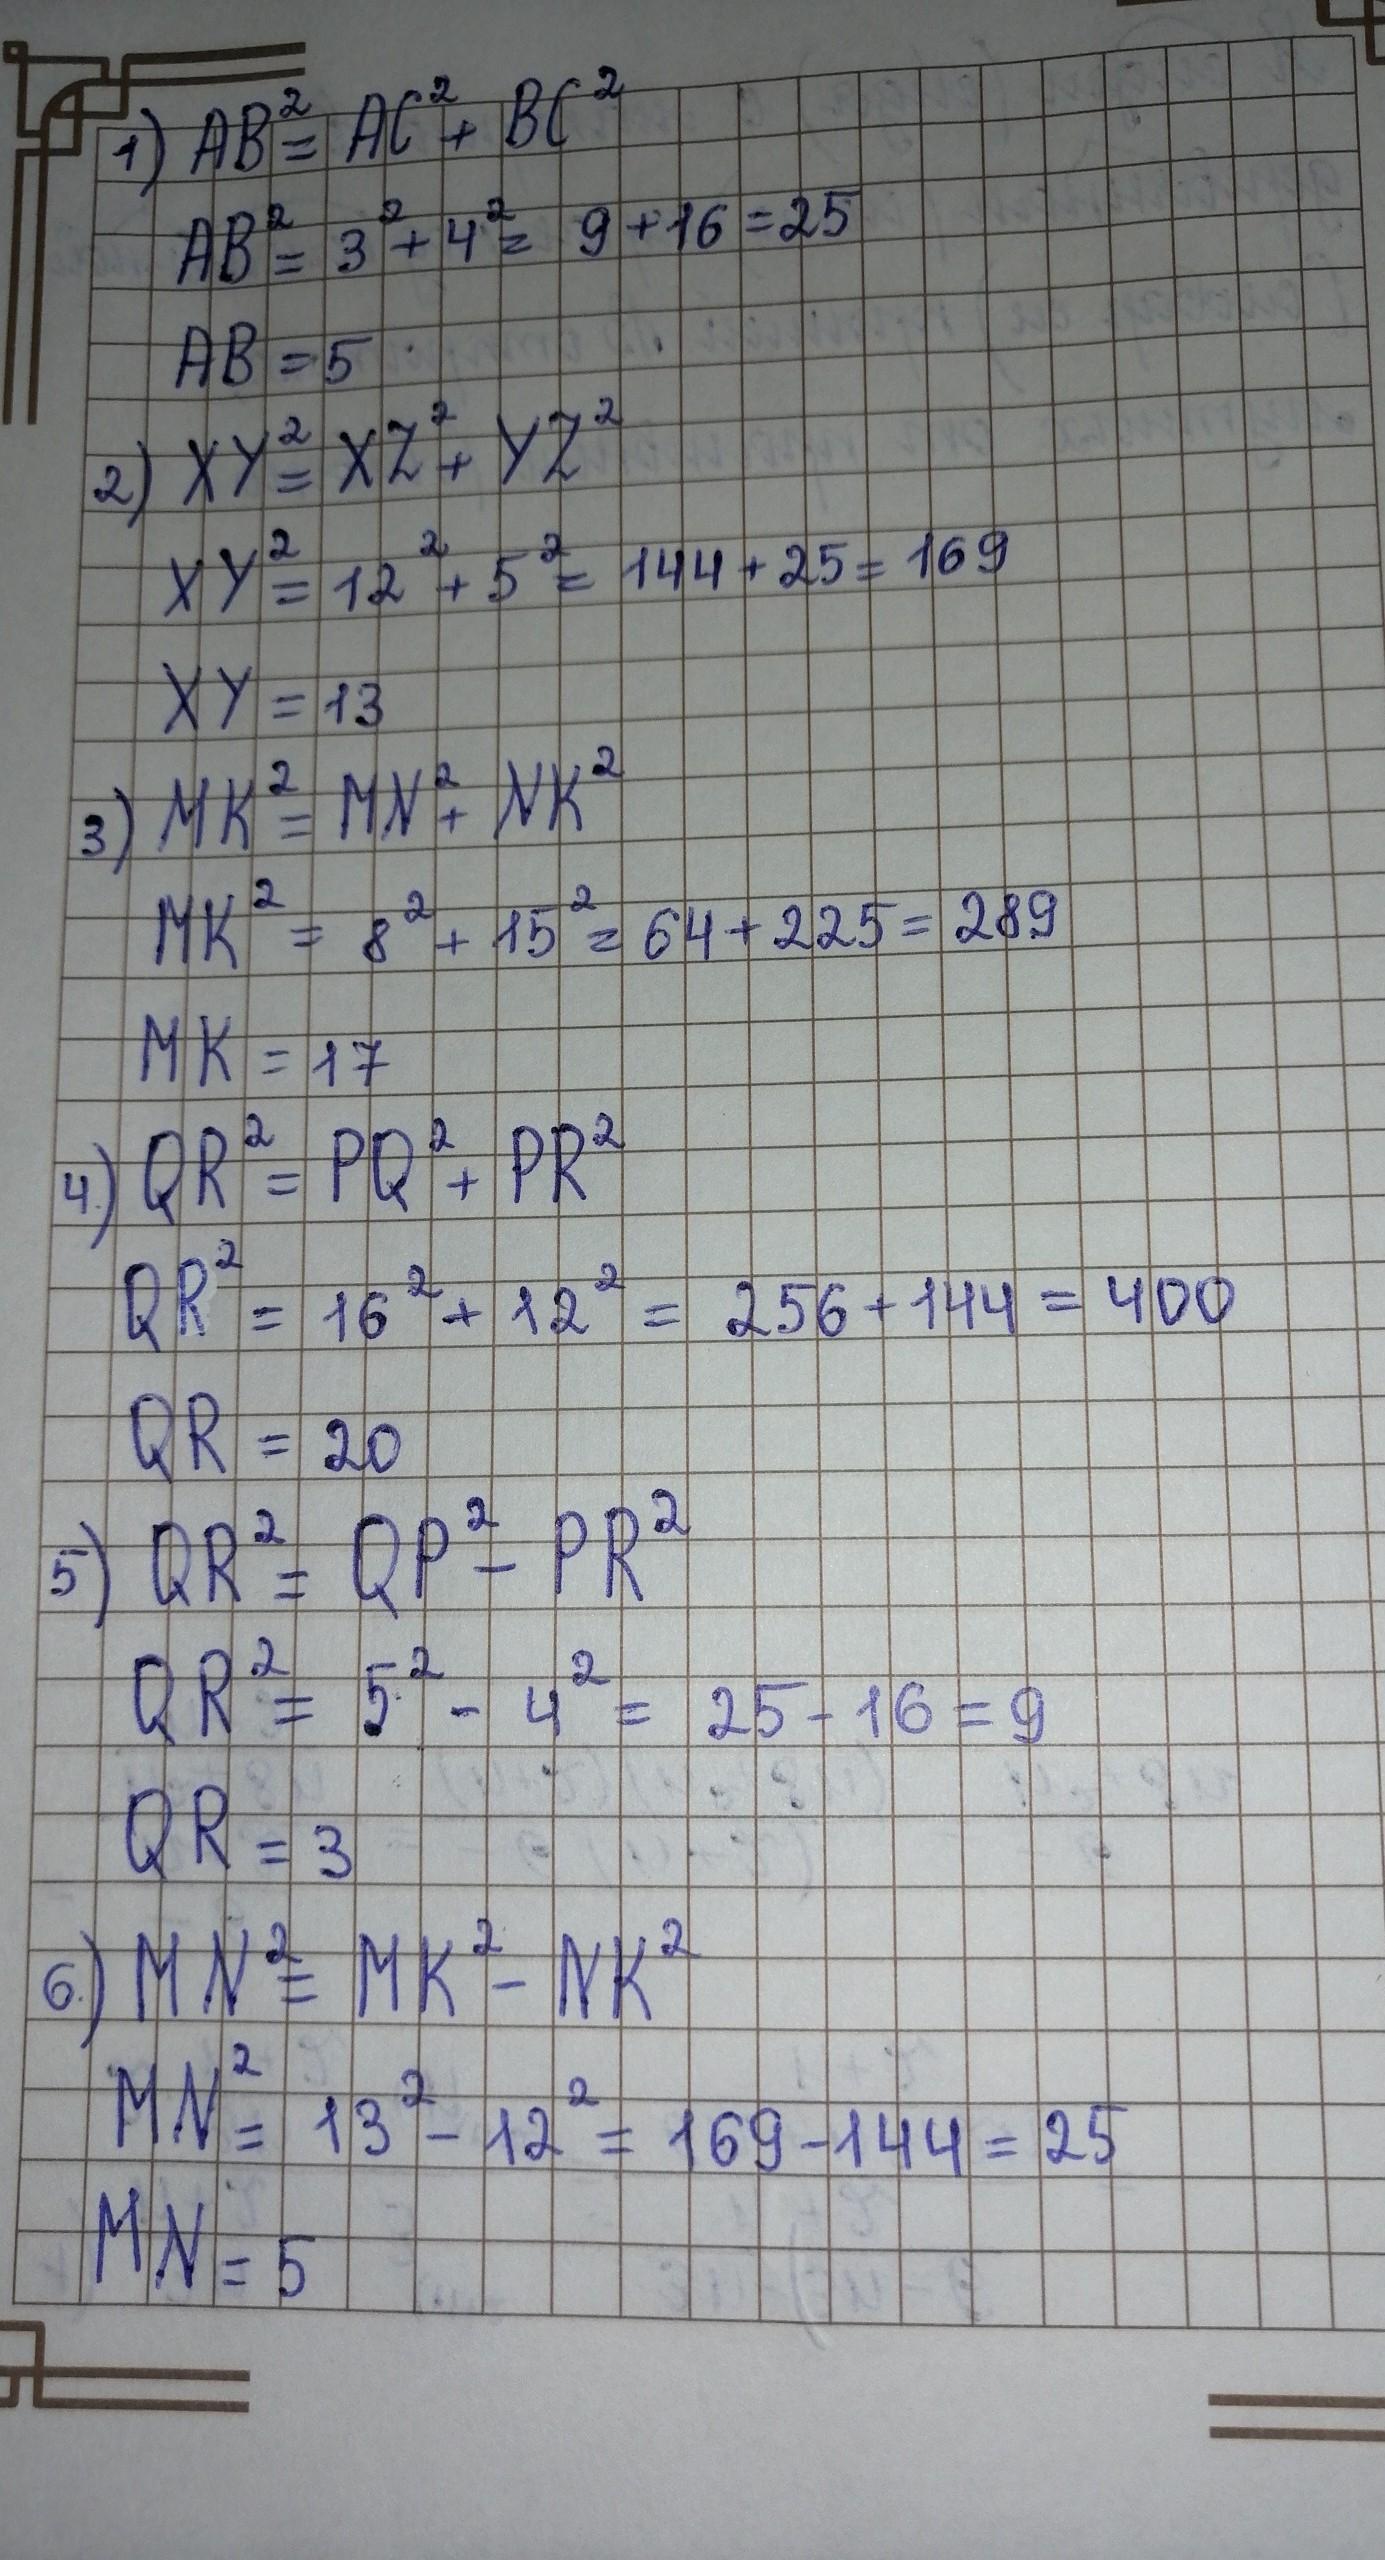 1) AB² = AC² + BC²
AB² = 3² + 4² = 9 + 16 = 25
AB = 5
2) XY² = XZ² + YZ²
XY² = 12² + 5² = 144 + 25 = 169
XY = 13
3) MK² = MN² + NK²
MK² = 8² + 15² = 64 + 225 = 289
MK = 17
4) QR² = PQ² + PR²
QR² = 16² + 12² = 256 + 144 = 400
QR = 20
5) QR² = QP² - PR²
QR² = 5² - 4² = 25 - 16 = 9
QR = 3
6) MN² = MK² - NK²
MN² = 13² - 12² = 169 - 144 = 25
MN = 5